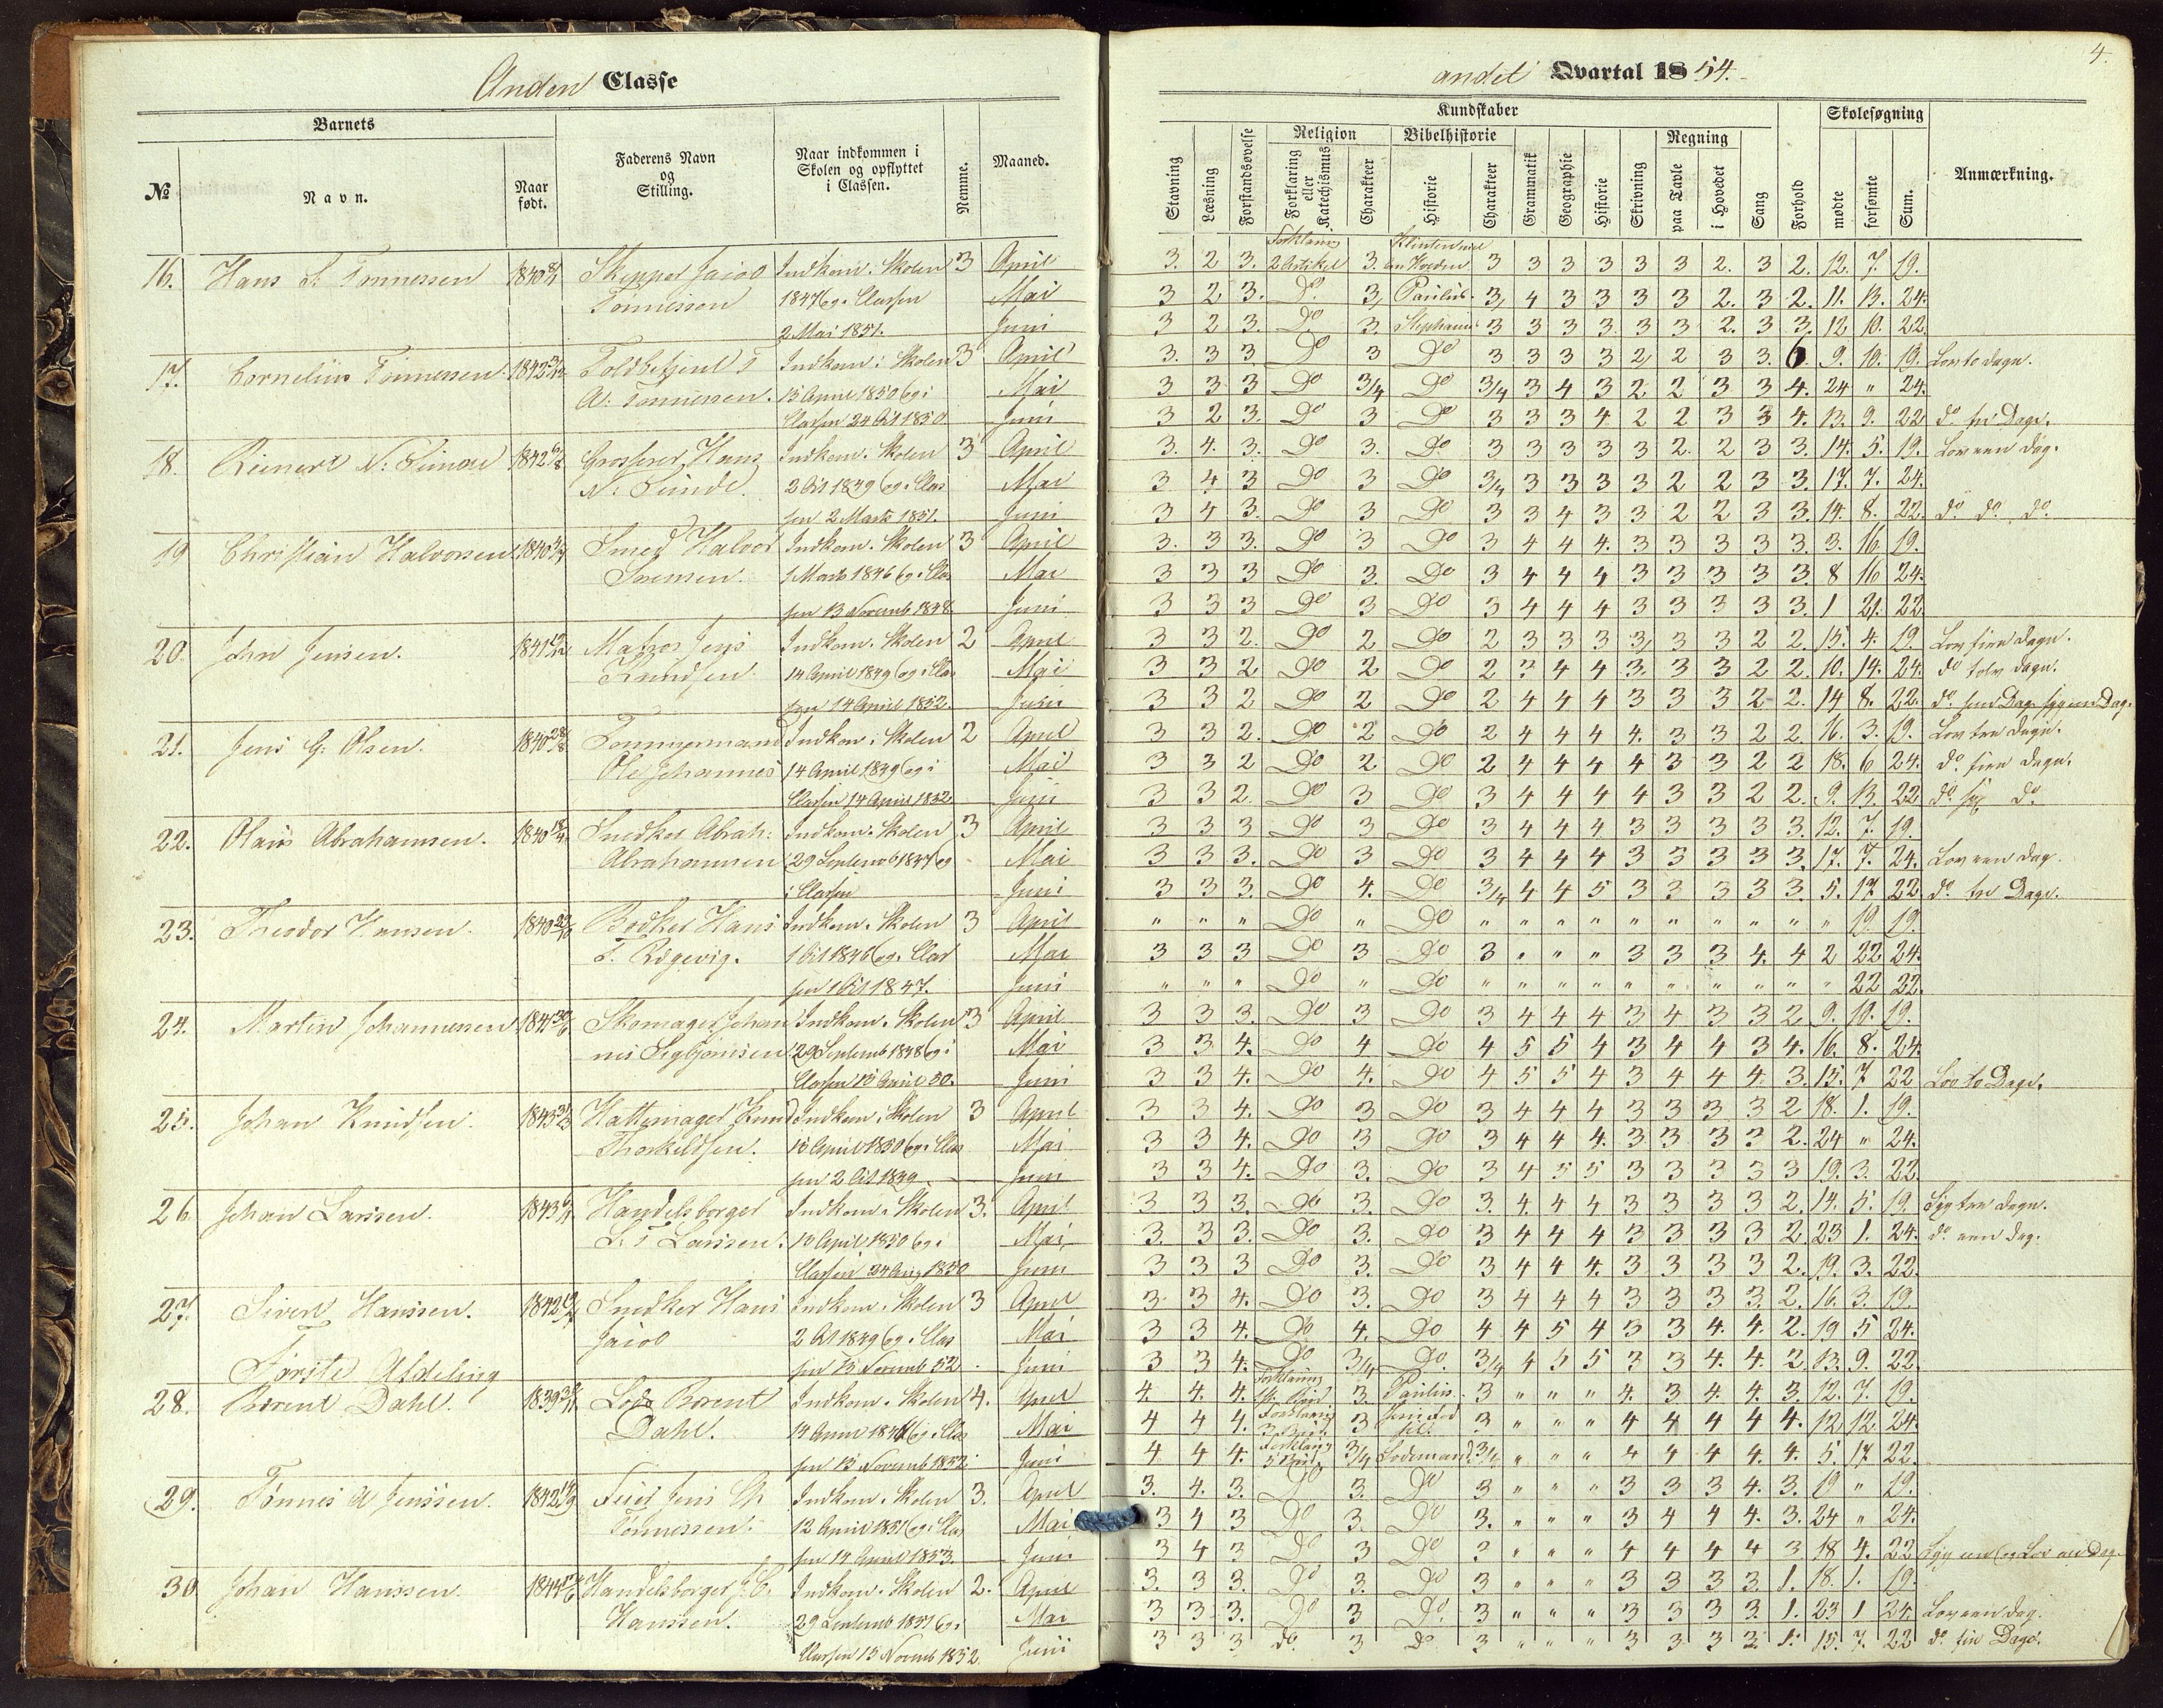 4.
Anden Classe
andet Qvartal 1854.
Barnets
№
Navn.
Naar født.
Faderens Navn og Stilling.
Naar indkommen i Skolen og opflyttet i Classen.
Nemme.
Maaned.
Kundskaber
Stavning
Læsning
Forstandsøvelse
Religion
Forklaring eller Katechismus
Charakteer
Bibelhistorie
Historie
Charakteer
Grammatik
Geographie
Historie
Skrivning
Regning
paa Tavle
i Hovedet
Sang
Forhold
Skolesøgning
mødte
forsømte
Sum.
Anmærkning.
16. Hans Tønnessen 1840 Skipper Jacob Indkom i Skolen 3 April 3. 2 3. Forklaring 2 Artikel 3. 3 3 3 3 3 3 2. 3 2. 12. 7. 19.
Tønnessen 1847 og i Classen Mai 3 2 3. Do 3 Paulus 3 4 3 3 3 3 2. 3 2. 11. 13. 24.
2 Mai 1851. Juni 3 2 3. Do 3. Stephanus 3 3 3 3 3 3 2. 3 3. 12 10. 22
17. Cornelius Tønnessen 1842 Toldbetjent T Indkom i Skolen 3 April 3. 3 3 Do 3 Do 3 3 3 3 2 2 3 3. 6. 9. 10. 19. Lov to dage.
A. Tønnessen. 15 April 1850 og i Mai 3 3 3 Do 3/4 Do 3/4 3 4 3 2 2 3 3 4. 24 " 24.
Classen 24 1850 Juni 3 2 3. Do 3 Do 3 3 3 4 2 2 3 3 4. 13. 9. 22 do Dage.
18. N. 1842 6/8 Grosserer Hans Indkom i Skolen 3 April 3. 4. 3. Do 3. Do 3 3 3 3 3 2. 2 3 3. 14. 5. 19. Lov een dag.
N. 1849 og i Clas Mai 3 4 3 Do 3 Do 3/4 3 3 3 3 2 2 3 3. 17. 7. 24.
sen 2 Marts 1851. Juni 3 4 3. Do 3 Do 3 3 4 3 3 2 2 3 3. 14. 8. 22. do do do
19 Christian Halvorsen 1840 Smed Halvor Indkom i Skolen 3 April 3. 3 3. Do 3 Do 3 4 4 4. 3 3 3 3 3. 3. 16. 19.
Sørensen. 1 Marts 1846 og i Clas Mai 3 3 3 Do 3. Do 3 4 4 4 3 3 3 3 3. 8 16 24.
sen 13 Novemb 1848 Juni 3 3 3 Do 3 Do 3 4 4 4 3 3 3 3 3. 1 21. 22.
20. John Jensen. 1841 Matros Jens Indkom i Skolen 2 April 3 3 2. Do 2 Do 2 3 3 3 3 3 3 2 2. 15. 4. 19. Lov fire dage.
Knudsen. 14 April 1849 og i Clas Mai 3 3 2 Do 2 Do 2 3 4 4 3. 3 3 2 2. 10. 14. 24. do tolv dage.
sen 14 April 1852. Juni 3 3 2 Do 2 Do 2 4 4 4 3 3 3 2 2. 14 8. 22. do Dag. syg een Dag.
21. Jens G. Olsen. 1840 28/8 Tømmermand Indkom i Skolen 2 April 3 3 2. Do 2 Do 2 4 4 4 4. 3 3 2 2. 16. 3. 19. Lov tre dage.
Ole Johannes 14 April 1849 og i Mai 3 3 2 Do 2 Do 2 4 4 4 4 3 3 2 2 18. 6 24. do fire dage.
Classen 14 April 1852. Juni 3 3 2. Do 3 Do 3 4 4 4 4 3 3 2 2. 9. 13. 22 do do
22. Olaus Abrahamsen. 1840 Snedker Abrah: Indkom i Skolen 3 April 3 3 3 Do 3 Do 3 4 4 4 3 3 3 3 3. 12. 7. 19.
Abrahamsen 29 Septemb 1847 og Mai 3 3 3. Do 3 Do 3 4 4 4 3 3 3 3 3. 17. 7. 24. Lov een dag.
i Classen Juni 3 3 3. Do 4. Do 3/4 4 4 5 3 3 3 3 3. 5. 17 22. do tre Dage.
23. Theodor Hansen. 1840 Bødker Hans Indkom i Skolen 3 April " " " Do " Do " " " " " " " " " " 19. 19.
T. Røgevig. 1846 og i Clas Mai 3 3 3 Do 3 Do 3 " " " 3 3 3 4. 4 2 22 24.
sen 1847. Juni " " " Do " Do " " " " " " " " " " 22 22.
24. Martin Johannessen 1841 Skomager Johan Indkom i Skolen 3 April 3 3 3. Do 3 Do 3 4 4 4 3 4 3 3 2 9. 10. 19.
nis Sigbjørnsen 29 Septemb 1848 og i Mai 3 3 4. Do 4 Do 4 5 5 4 3 4 4 3 4. 16. 8. 24.
Classen 15 April 50. Juni 3 3 4. Do 4. Do 4 5 5 4 3 4 4 4. 3. 15. 7 22 Lov to Dage.
25. Johan Knudsen. 1843 Hattemager Knud Indkom i Skolen 3 April 3 3 4. Do 3 Do 3 4 4 4 3 3 3 3 2 18. 1. 19.
Thorkildsen. 15 April 1850 og i Clas Mai 3 3 4. Do 3 Do 3 4 4 4. 3 3 3 3 2. 24 " 24.
sen 2 1849. Juni 3 3 4. Do 3. Do 3 4 5 5 3 3 3 3 3 19. 3. 22.
26. Johan Larssen. 1843 Handelsborger Indkom i Skolen 3. April 3 3 3. Do 3. Do 3. 4. 4 4 3 3 3 3 2. 14. 5. 19. Syg tre dage.
L. T Larssen. 10 April 1850 og i Mai 3. 3 3. Do 3. Do 3 4 4 4 3 3 3 3 2 23 1. 24. do een dag.
Classen 24 Aug 1850 Juni 3 3 3 Do 3. Do 3 4 4 4. 3 3 3 3 2. 19. 3. 22.
27. Sivert Hanssen. 1842 Snedker Hans Indkom i Skolen 3 April 3 3 4. Do 3. Do 3 4 4 4 3 3 3 3. 2. 16. 3. 19.
Jacob 2 1849 og i Clas Mai 3 3 4. Do 4. Do 4 4 5 4 3 3 4. 4. 2. 19 5 24.
sen 15 Novemb 52 Juni 3 3 4. Do 3/4 Do. 3/4 4 5 5 3 3 4. 4. 2 13. 9. 22.
Første Afdeling
28. Berent Dahl. 1839 Lods Berent Indkom i Skolen 4. April 4. 4. 4. Forklaring 3. Paulus 3 " " " 4. 3 4. 4. 3. 12. 7. 19.
Dahl. 14 April og i Clas Mai 4 4 4. Forklaring 3 3 " " " 4 4 4 4 4. 12 12. 24.
sen 15 Novemb 1852 Juni 4 4 4. Forklaring 3/4 3/4 " " " 4 4 4 4. 4. 5. 17 22.
29. Tønnes A Jenssen. 1842 Jens Ch Indkom i Skolen 3. April 3. 4. 3. Do 3. Do 3 " " " 3 3 3 4. 3. 19 " 19.
Tønnessen. 12 April 1851 og i Clas Mai 3 4 3 Do 3. Do 3. " " " 3 4 4 4. 3. 24 " 24.
sen 14 April 1853. Juni 3 4 3 Do 3 Do 3 " " " 4 4 4 4 3 18 4. 22 Syg een og Lov een Dag.
30. Johan Hanssen. 1844 Handelsborger J. C. Indkom i Skolen 2. April 3. 3 3. Do 3. Do 3 " " " 3 3 3 3. 1. 18. 1. 19.
Hanssen. 29 Septemb 1851 og i Mai 3 3 3. Do 3 Do. 3 " " " 3 3 3 3. 1. 23 1 24. Lov een dag.
Classen 15 Novemb 1852. Juni 3 3 3 do. 3 do. 3 " " " 3 3 3 3 1. 15. 7. 22 do Dage.